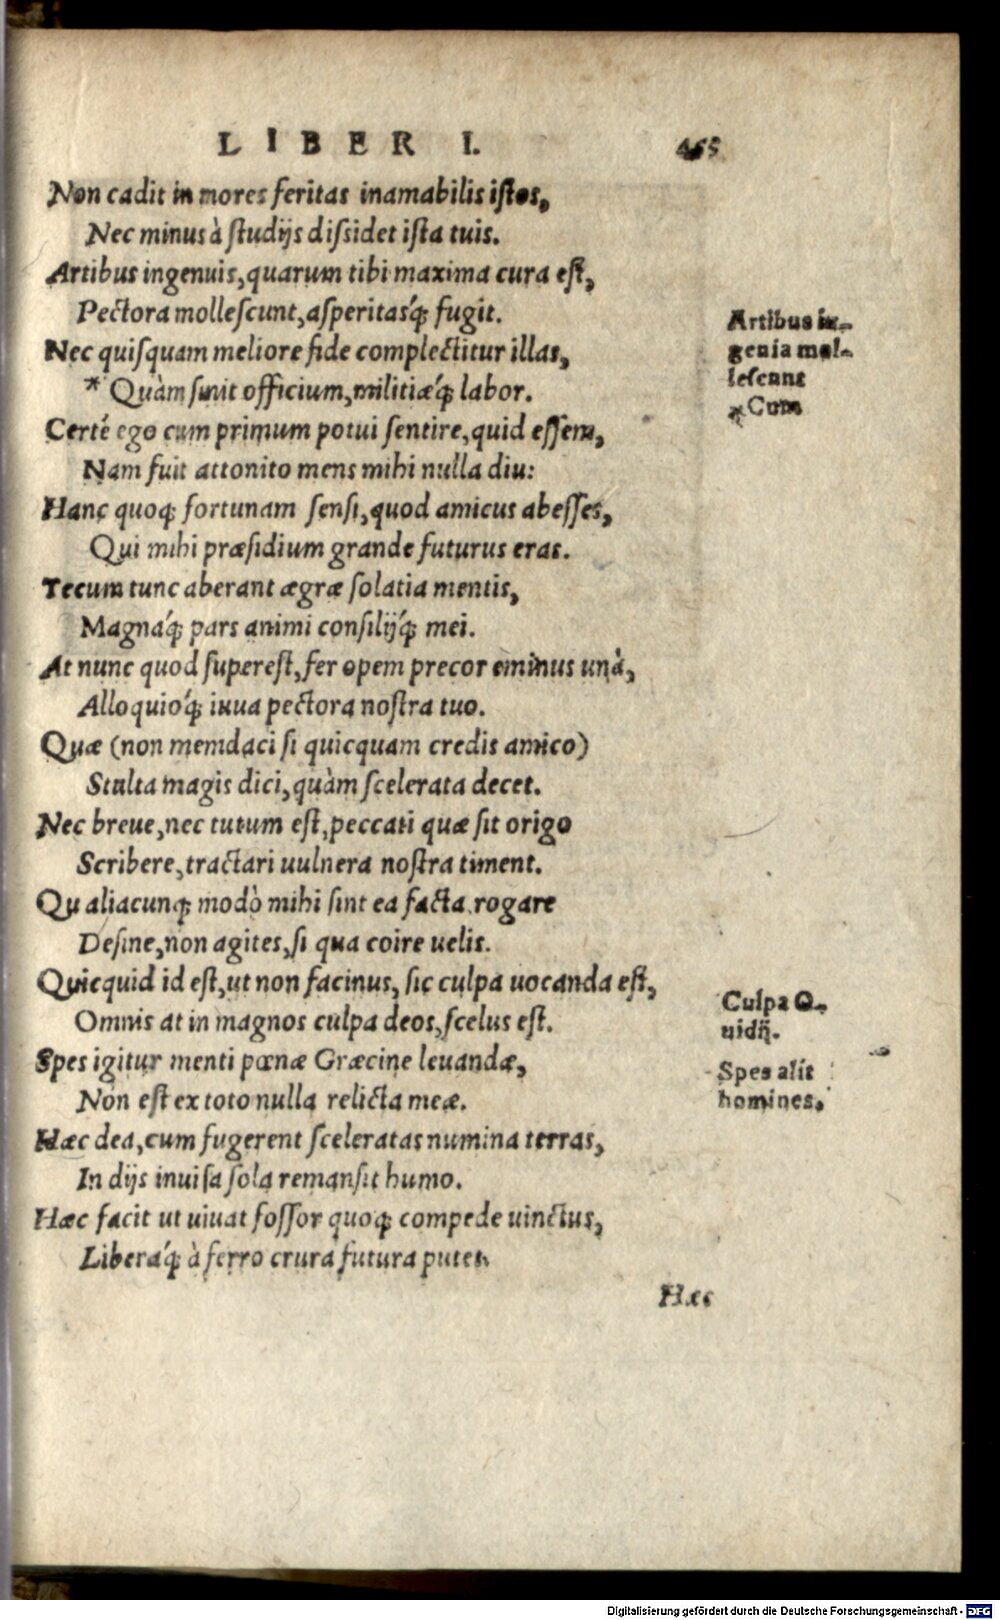 LIBER I. 455
Non cadit in mores feritas inamabilis istos,
Nec minus à studijs dissidet ista tuis.
Artibus ingenuis, quarum tibi maxima cura est,
Pectora mollescunt, asperitasq́; fugit.
Nec quisquam meliore fide complectitur illas,
* Quàm sinit officium, militiæq́; labor.
Certé ego cum primum potui sentire, quid essem,
Nam fuit attonito mens mihi nulla diu:
Hanc quoq; fortunam sensi, quod amicus abesses,
Qui mihi præsidium grande futurus eras.
Tecum tunc aberant ægræ solatia mentis,
Magnaq́; pars animi consilijq́; mei.
At nunc quod superest, fer opem precor eminus unà,
Alloquioq́; iuua pectora nostra tuo.
Quæ (non memdaci si quicquam credis amico)
Stulta magis dici, quàm scelerata decet.
Nec breue, nec tutum est, peccati quæ sit origo
Scribere, tractari uulnera nostra timent.
Qualiacunq; modò mihi sint ea facta rogare
Desine, non agites, si qua coire uelis.
Quicquid id est, ut non facinus, sic culpa uocanda est,
Omnis at in magnos culpa deos, scelus est.
Spes igitur menti pœnæ Græcine leuandæ,
Non est ex toto nulla relicta meæ.
Hæc dea, cum fugerent sceleratas numina terras,
In dijs inuisa sola remansit humo.
Hæc facit ut uiuat fossor quoq; compede uinctus,
Liberaq́; à ferro crura futura putet.
Hæc
Artibus in-
genia mol-
lescunt
* Cum
Culpa O-
uidij.
Spes alit
homines.
Digitalisierung gefördert durch die Deutsche Forschungsgemeinschaft - DFG